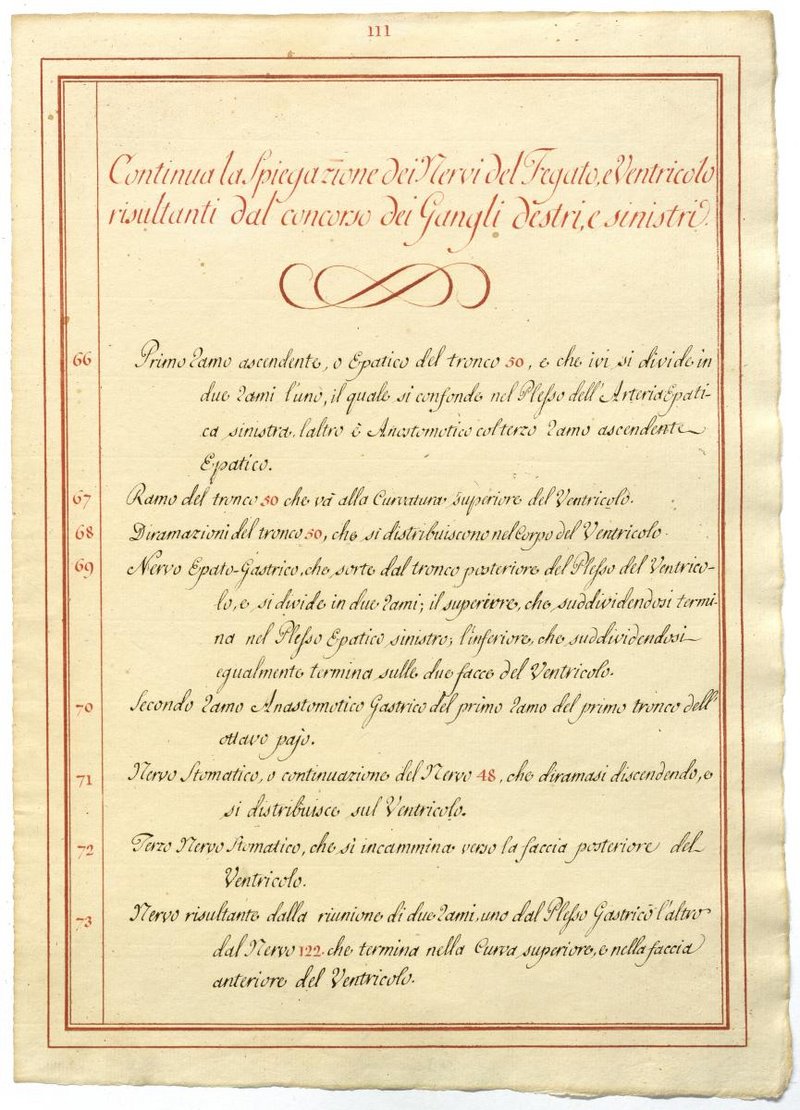 111
Continua la Spiegazione dei Nervi del Fegato, e Ventricolo
risultanti dal concorso dei Gangli destri, e sinistri.
66 Primo Ramo ascendente, o Epatico del tronco 50, e che ivi si divide in
due Rami l'uno, il quale si confonde nel Plesso dell'Arteria Epati-
ca sinistra, l'altro è Anostomotico col terzo Ramo ascendente
Epatico.
67 Ramo del tronco 50 che và alla Curvatura superiore del Ventricolo.
68 Diramazioni del tronco 50, che si distribuiscono nel Corpo del Ventricolo.
69 Nervo Epato-Gastrico, che sorte dal tronco posteriore del Plesso del Ventrico-
lo, e si divide in due Rami; il superiore, che suddividendosi termi-
na nel Plesso Epatico sinistro; l'inferiore, che suddividendosi
egualmente termina sulle due facce del Ventricolo.
70 Secondo Ramo Anastomotico Gastrico del primo Ramo del primo tronco dell'
ottavo pajo.
71 Nervo Stomatico, o continuazione del Nervo 48, che diramasi discendendo, e
si distribuisce sul Ventricolo.
72 Terzo Nervo Stomatico, che si incammina verso la faccia posteriore del
Ventricolo.
73 Nervo risultante dalla riunione di due Rami, uno dal Plesso Gastrico l'altro
dal Nervo 122. che termina nella Curva superiore, e nella faccia
anteriore del Ventricolo.